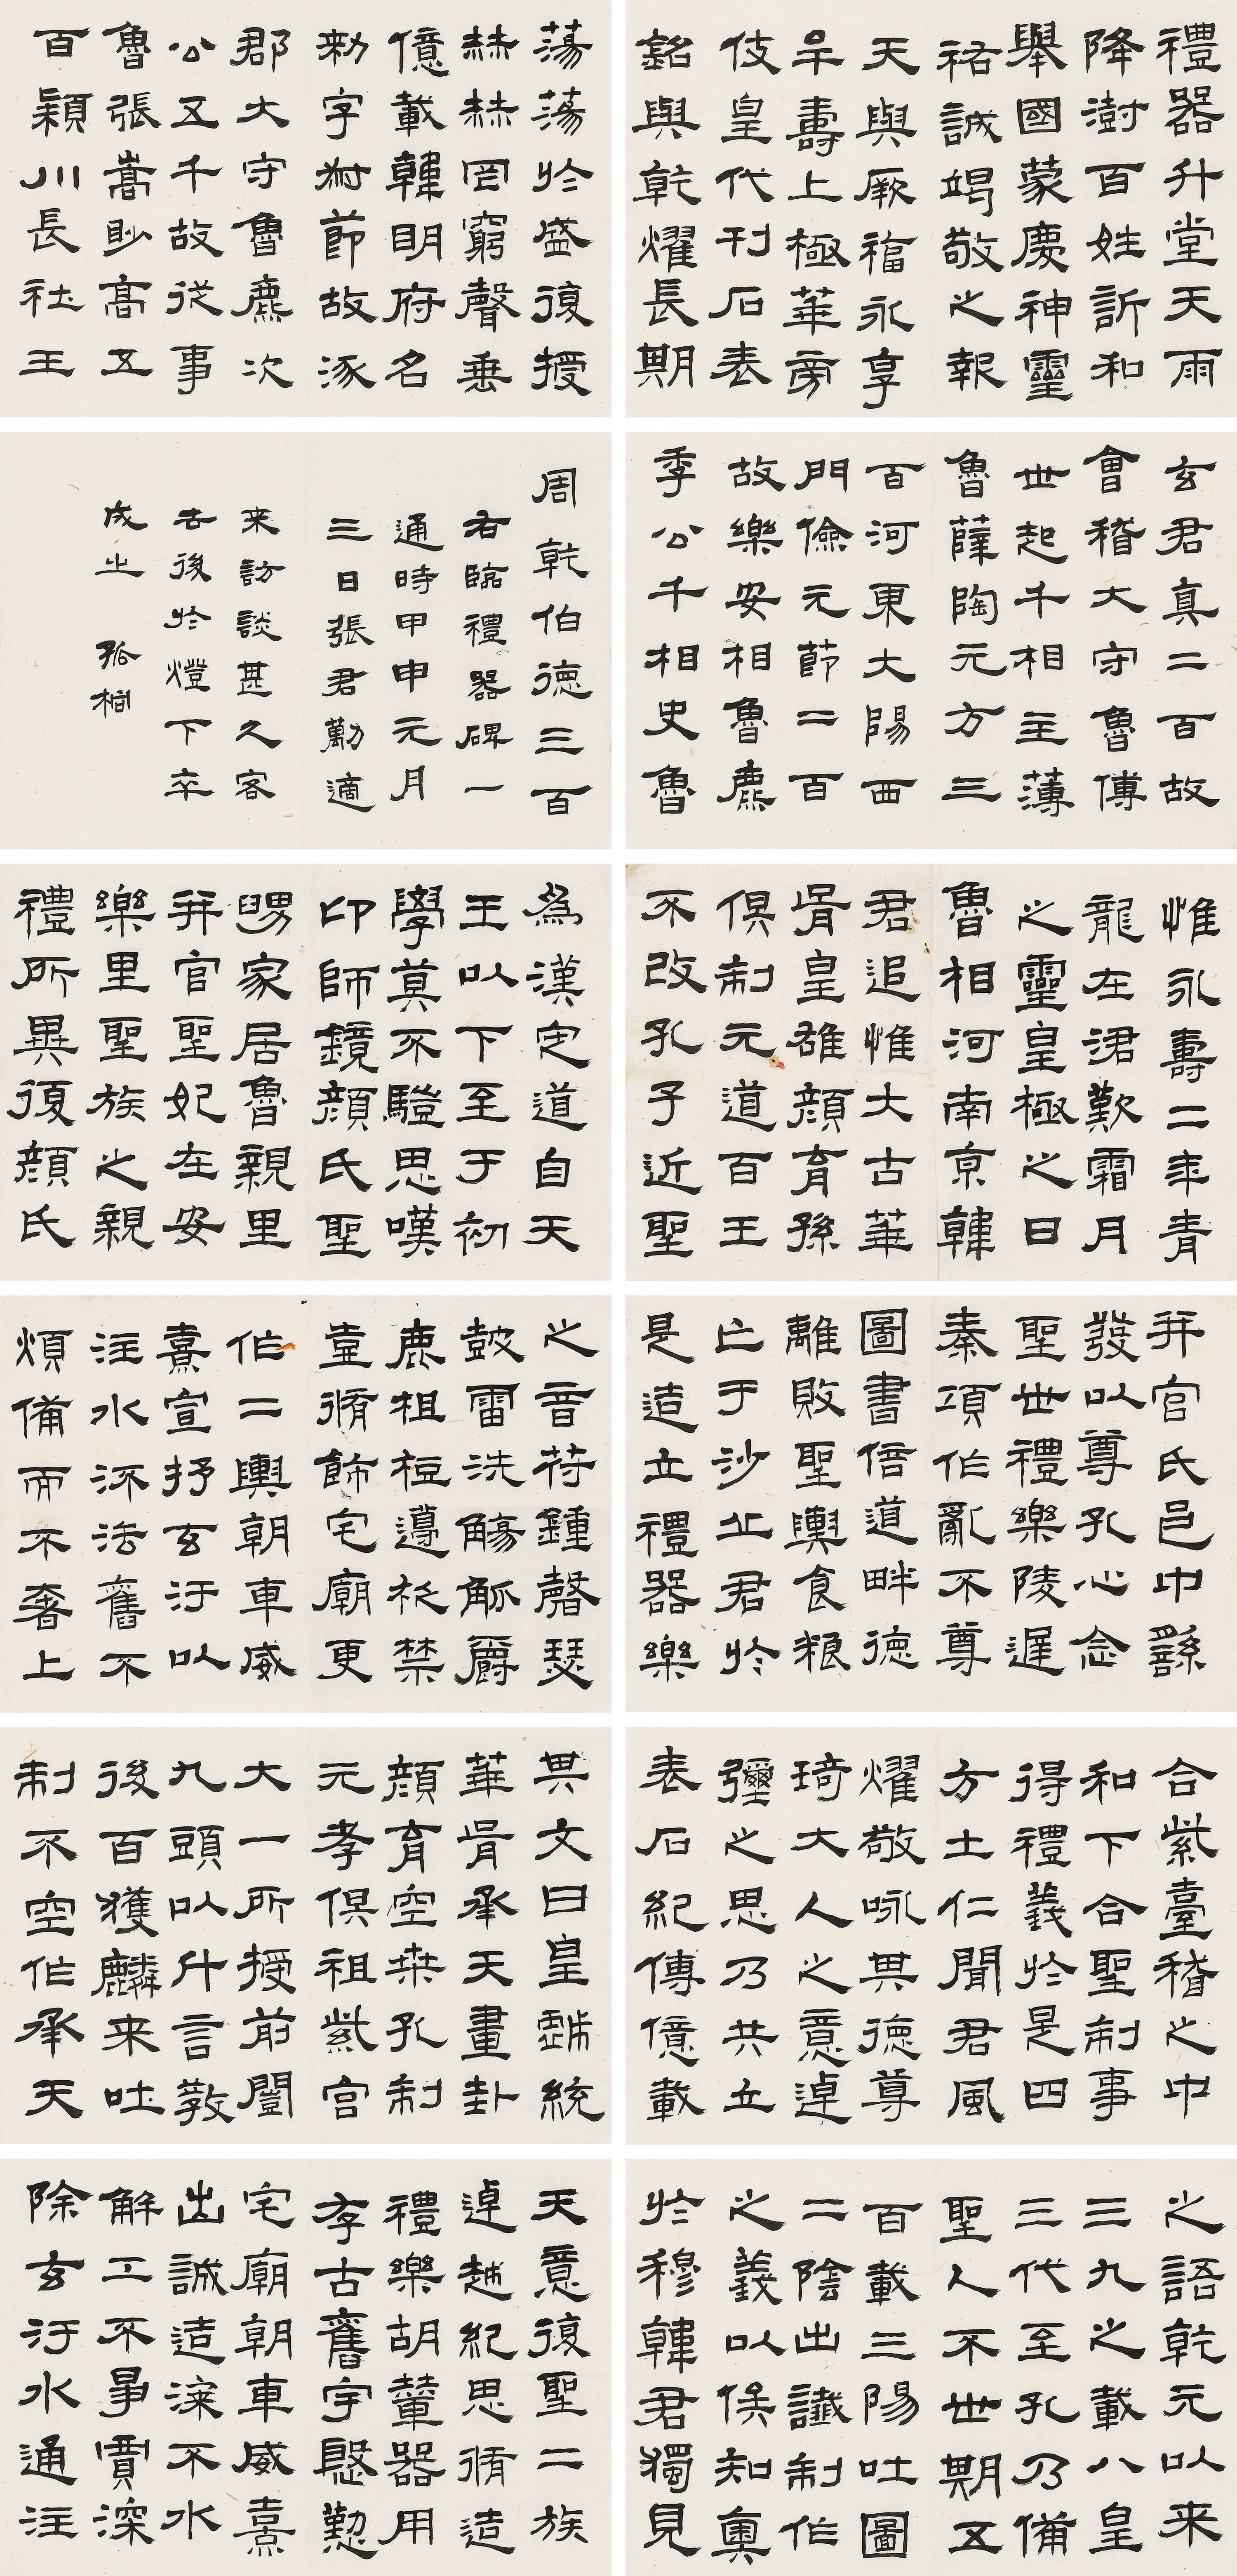 禮器升堂天雨
降澍百姓訢和
舉國蒙慶神靈
祐誠竭敬之報
天與厥福永享
牟壽上極華旁
伎皇代刊石表
銘與乾燿長期
蕩蕩於盛復授
赫赫罔窮聲垂
億載韓明府名
勑字叔節故涿
郡大守魯麃次
公五千故從事
魯張嵩眇高五
百潁川長社王
玄君真二百故
會稽大守魯傅
世起千相主薄
魯薛陶元方三
百河東大陽西
門儉元節二百
故樂安相魯麃
季公千相史魯
周乾伯德三百
右臨禮器碑一
通時甲申元月
三日張君勱適
来訪談甚久客
去後於燈下卒
成之 孤桐
惟永壽二年青
龍在涒歎霜月
之靈皇極之日
魯相河南京韓
君追惟大古華
胥皇雄顏育孫
俱制元道百王
不改孔子近聖
為漢定道自天
王以下至于初
學莫不驥思嘆
卬師鏡顏氏聖
舅家居魯親里
并官聖妃在安
樂里聖族之親
禮所異復顏氏
并官氏邑中繇
發以尊孔心念
聖世禮樂陵遲
秦項作亂不尊
圖書倍道畔德
離敗聖輿食糧
亡于沙丘君於
是造立禮器樂
之音符鍾磬瑟
鼓雷洗觴觚爵
鹿柤梪籩柉禁
壺脩飾宅廟更
作二輿朝車威
熹宣抒玄汙以
注水流法舊不
煩備而不奢上
合紫臺稽之中
和下合聖制事
得禮義於是四
方士仁聞君風
燿敬咏其德尊
琦大人之意逴
彌之思乃共立
表石紀傳億載
其文曰皇戲統
華胥承天畫卦
顏育空桑孔制
元孝俱祖紫宮
大一所授前闓
九頭以升言教
後百獲麟来吐
制不空作承天
之語乾元以来
三九之載八皇
三代至孔乃備
聖人不世期五
百載三陽吐圖
二陰出讖制作
之義以俟知奧
於穆韓君獨見
天意復聖二族
逴越紀思脩造
禮樂胡輦器用
存古舊宇慇懃
宅廟朝車威熹
出誠造漆不水
解工不爭賈深
除玄汙水通注